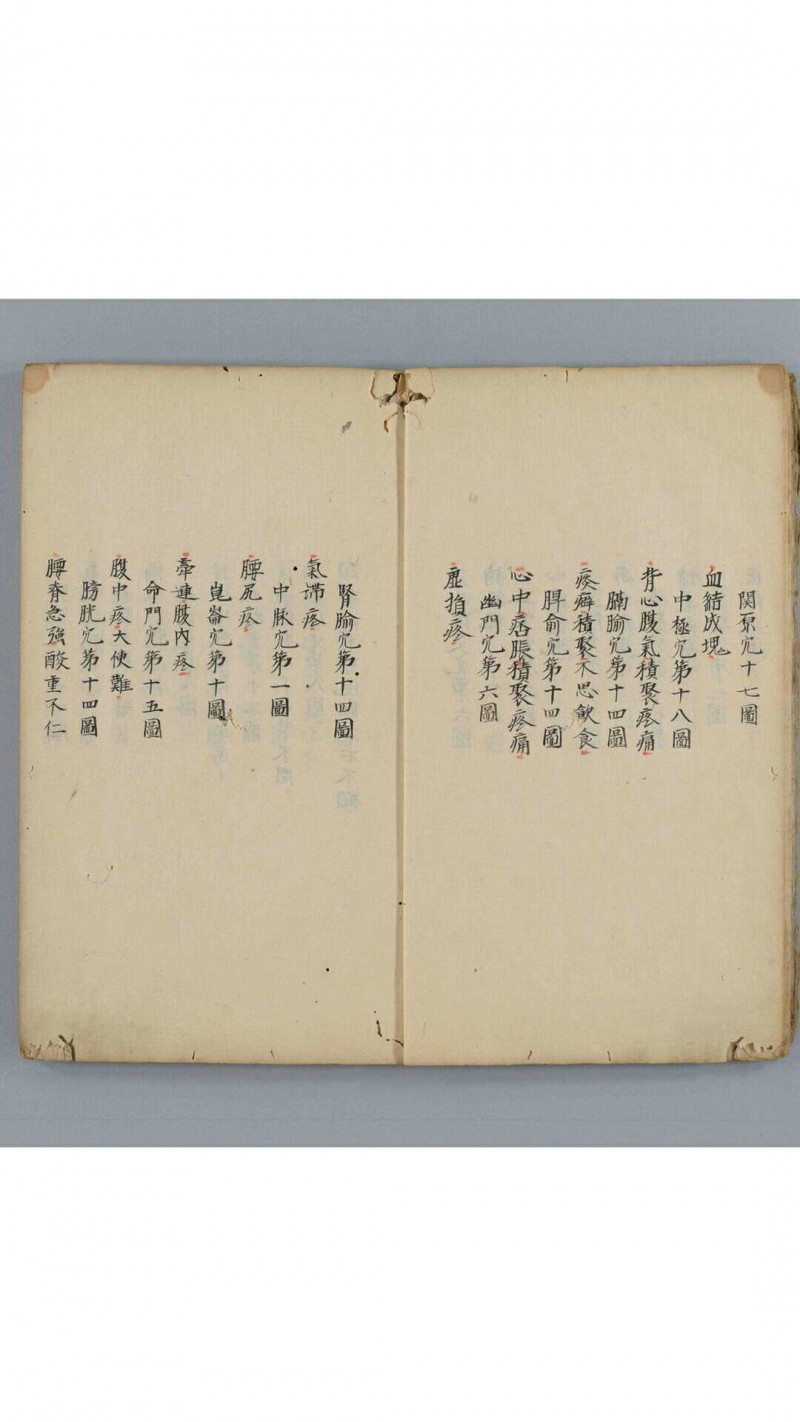 関原穴十七圖
血結成塊
中極穴第十八圖
背心腹氣積聚疼痛
膈腧穴第十四圖
痰癖積聚不思飲食
脾俞穴第十四圖
心中痞脹積聚疼痛
幽門穴第六圖
虛損疼
腎腧穴第十四圖
氣滞疼
中脉穴第一圖
腰尻疼
崑崙穴第十圖
牽連腹內疼
命門穴第十五圖
腹中疼大便難
膀胱穴第十四圖
腰脊急強酸重不仁